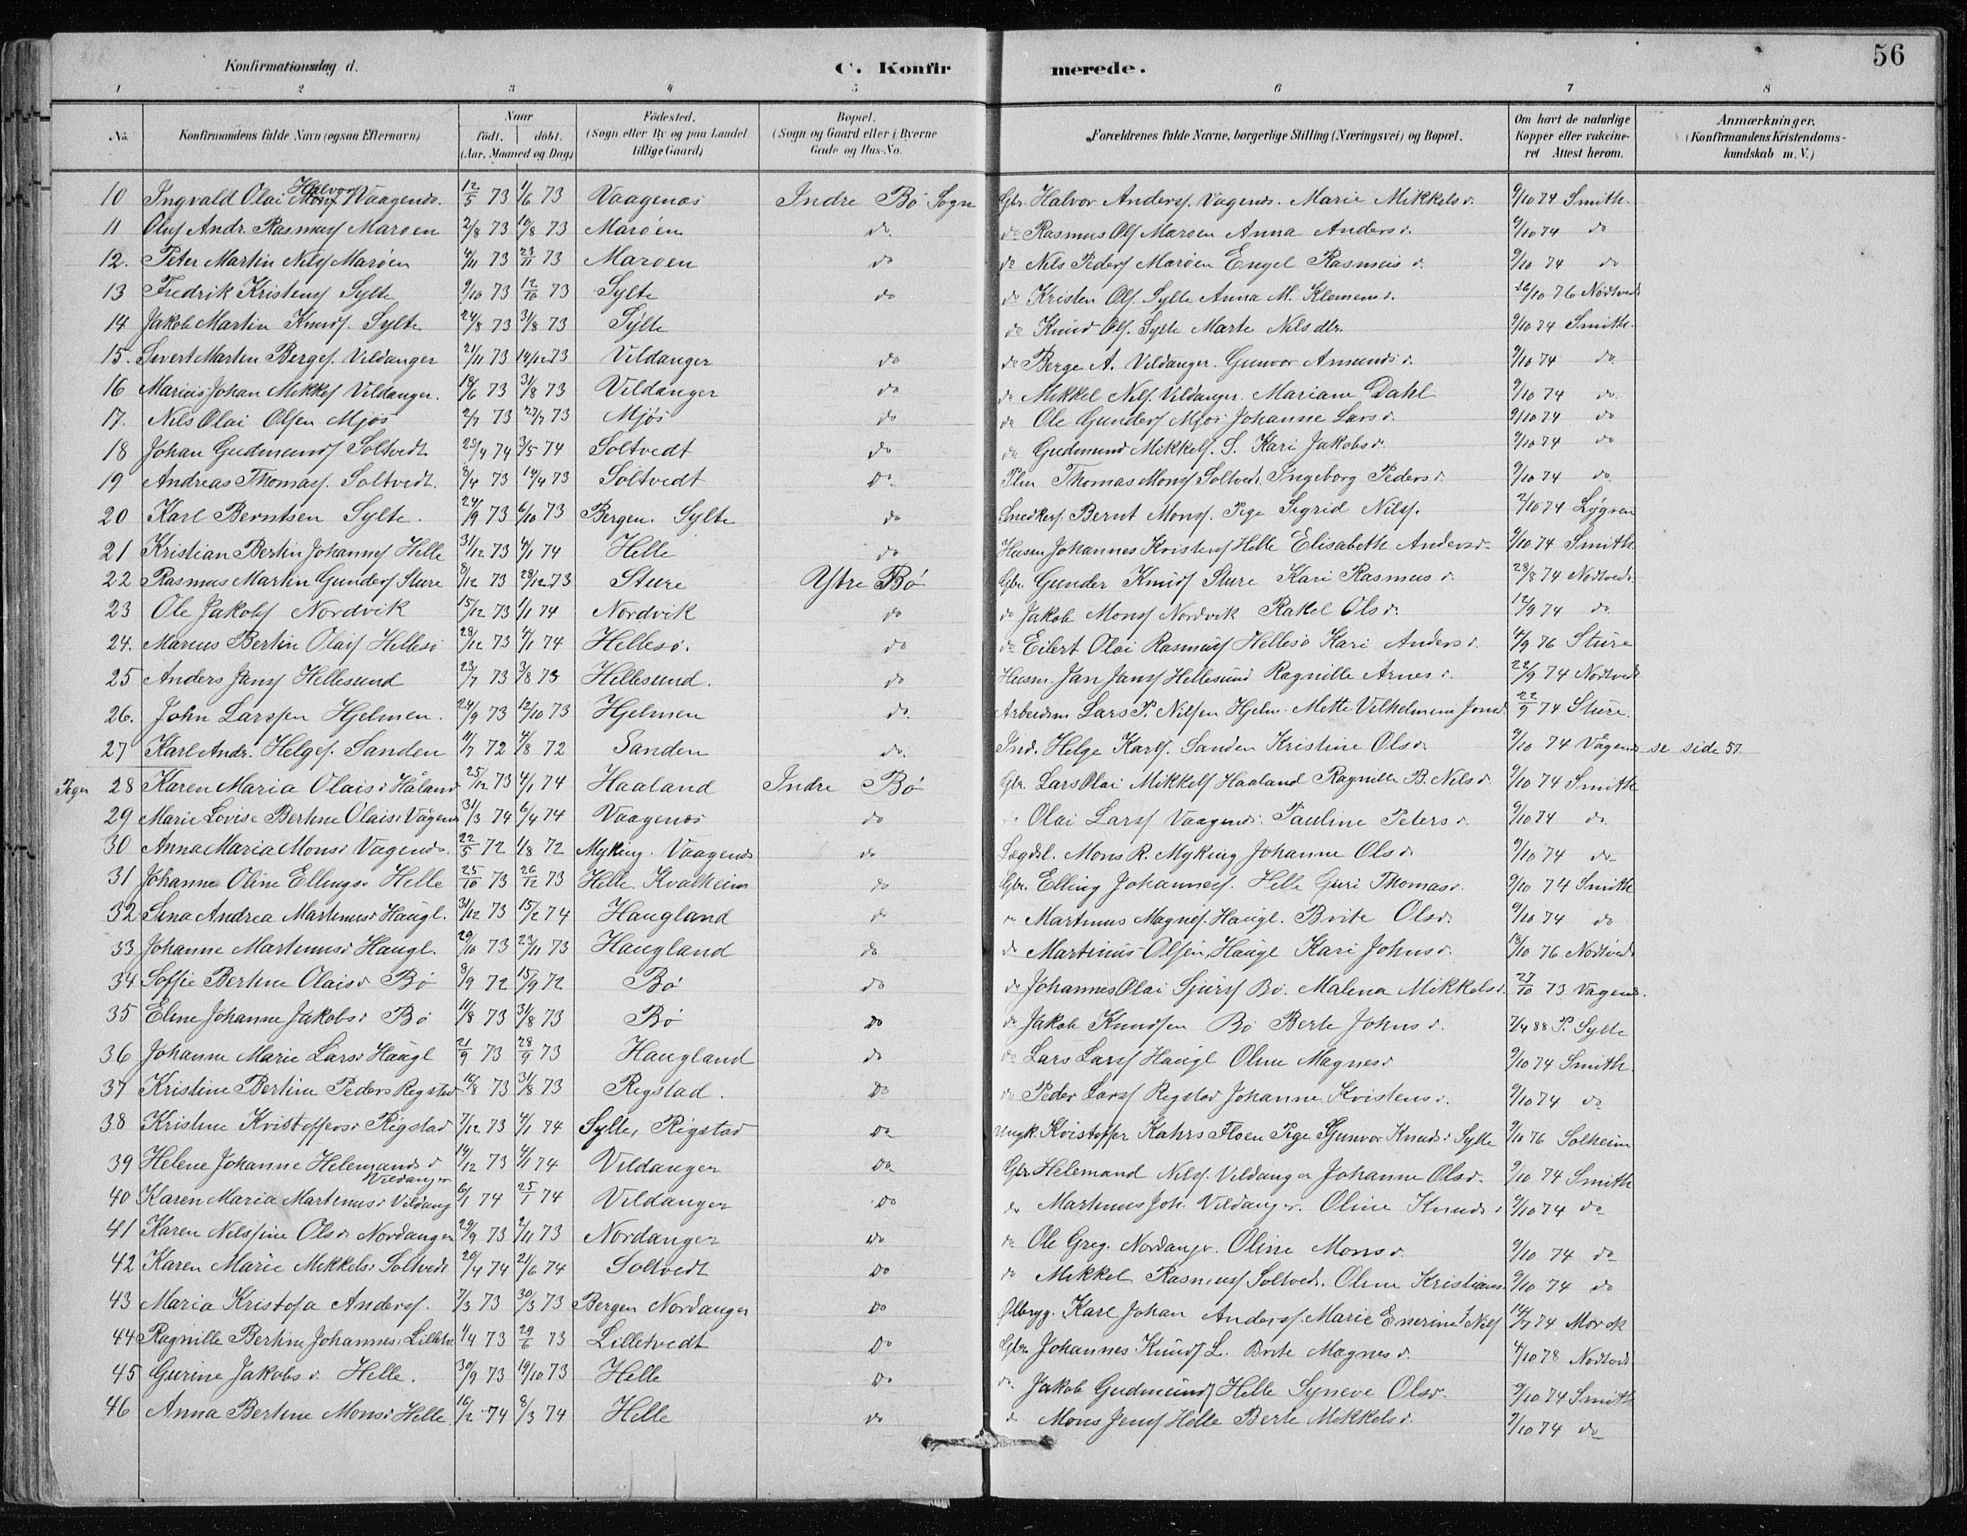 56
Konfirmationsdag d. C. Konfirmerede.
1 2 3 4 5 6 7 8
No. Konfirmandens fulde Navn (ogsaa Efternavn) Naar født. døbt. (Aar, Maaned og Dag) Fødested. (Sogn eller By og paa Landet tillige Gaard) Bopæl. (Sogn og Gaard eller i Byerne Gade og Hus-No. Forældrenes fulde Navne, borgerlige Stilling (Næringsvei) og Bopæl. Om havt de naturlige Kopper eller vakcineret Attest herom. Anmærkninger. (Konfirmandens Kristendomskundskab m. V.)
10 Ingvald Olai Halvors Vaagenæs. 12/5 73 1/6 73 Vaagenæs Indre Bø Sogn Gbr. Halvor Anders. Vagenes. Marie Mikkelsd. 9/10 74 Smith.
11 Oluf Andr. Rasmuss Marøen 2/8 73 10/8 73 Marøen do. do Rasmus Ols Marøen Anna Andersd. 9/10 74 do
12. Peter Martin Nilss Marøen 4/11 73 23/11 73 Marøen do do Nils Peders Marøen Engel Rasmusd. 9/10 74 do
13 Fredrik Kristens Sylte 9/10 73 12/10 73 Sylte do do Kristen Ols. Sylte Anna M. Klemensd. 26/10 76 Nødtvedt
14 Jakob Martin Knuds. Sylte 24/8 73 31/8 73 Sylte do do Knud Ols. Sylte Marte Nilsdtr. 9/10 74 Smith.
15. Sivert Martin Berges. Vildanger 21/11 73 14/12 73 Vildanger do do Berge A. Vildanger. Gunvor Amundsd. 9/10 74 do
16 Marius Johan Mikkels Vildanger. 18/6 73 31/8 73 Vildanger do do Mikkel Nils. Vildanger. Mariane Dahl 9/10 74 do
17. Nils Olai Olsen Mjøs 2/7 73 27/7 73 Mjøs do do Ole Gunders Mjøs Johanne Larsd. 9/10 74 do
18 Johan Gudmunds Soltvedt 23/4 74 3/5 74 Soltvedt do do Gudmund Mikkels. S. Kari Jakobsd. 9/10 74 do
19 Andreas Thomass. Soltvedt. 8/4 73 14/4 73 Soltvedt Do. Thomas Mons Soltvedt. Ingeborg Pedersd. 9/10 74 do
20 Karl Berntsen Sylte. 24/9 73 6/10 73 Bergen. Sylte do Snedkers. Bernt Mons. Pige Sigrid Nils. 2/10 74 Løgren
21 Kristian Bertin Johanness Helle 31/12 73 4/1 74 Helle do Husm Johannes Kristens Helle Elisabeth Andersd. 9/10 74 Smith
22 Rasmus Martin Gunders Sture 9/12 73 28/12 73 Sture Ytre Bø Gbr. Gunder Knuds Sture Kari Rasmusd. 28/8 74 Nødtvedt.
23 Ole Jakobs Nordvik 15/12 73 1/1 74 Nordvik do do Jakob Mons Nordvik Rakel Olsd. 12/9 74 do
24. Marius Bertin Olais Hellesø 28/12 73 4/1 74 Hellesø. do do Eilert Olai Rasmuss Hellesø Kari Andersd. 4/9 76 Sture
25 Anders Jans Hellesund 23/7 73 3/8 73 Hellesund. do Husm. Jan Jans Hellesund Ragnille Arnesd. 22/9 74 Nødtvedt
26. John Larssen Hjelmen. 24/9 73 12/10 73 Hjelmen do. Arbeidsm Lars P. Nilsen Hjelm. Mette Vilhelmine Jonsd. 22/9 74 Sture.
27 Karl Andr. Helges. Sanden 11/7 72 4/8 72 Sanden do. Ind. Helge Karls. Sanden Kristine Olsd. 9/10 74 Vågenes se side 57
Piger 28 Karen Maria Olaisd Håland 25/12 73 4/1 74 Haaland Indre Bø Gbr. Lars Olai Mikkels Haaland Ragnille B. Nilsd. 9/10 74 Smith
29 Marie Lovise Bertine Olaisd Vågenes 31/3 74 6/4 74 Vaagenes do Olai Lars Vaagenes. Pauline Petersd. 9/10 74 do.
30 Anna Maria Monsd Vagenes. 22/5 72 1/8 72 Myking. Vaagenes do Lægdsl. Mons R. Myking Johanne Olsd. 9/10 74 do
31 Johanne Oline Ellingsd. Helle 25/10 73 26/12 73 Helle. Kvalheim do Gbr. Elling Johanness. Helle Guri Thomasd. 9/10 74 Smith
32 Sina Andrea Martinusd Haugl. 31/12 73 15/2 74 Haugland do Martinus Magnes. Haugl. Brite Olsd. 9/10 74 do
33 Johanne Martinusd Haugl. 29/10 73 23/11 73 Haugland do do Martinus Olsen Haugl Kari Johnsd. 18/10 76 Nødtvedt
34 Soffie Bertine Olaisd Bø 8/9 72 15/9 72 Bø do do Johannes Olai Sjurs Bø. Malena Mikkelsd. 27/10 73 Vagenes.
35 Eline Johanne Jakobsd Bø 11/8 73 31/8 73 Bø do do Jakob Knudsen Bø Berte Johnsd. 7/4 88 P. Sylte
36 Johanne Marie Larsd Haugl 21/9 73 28/9 73 Haugland do do Lars Lars Haugl Oline Magnesd 9/10 74 Smith.
37 Kristine Bertine Peders Rigstad 16/8 73 31/8 73 Rigstad. do do Peder Lars Rigstad Johanne Kristensd. 9/10 74 do
38 Kristine Kristoffersd Rigstad 7/12 73 4/1 74 Sylte, Rigstad do Ungk. Kristoffer Kahrs Floen Pige Gunvor Knudsd Sylte 9/10 76 Solheim
39 Helene Johanne Helemandsd Vildanger 14/12 73 4/1 74 Vildanger do Gbr. Helemand Nils. Vildanger Johanne Olsd. 9/10 74 Smith
40 Karen Maria Martinusd Vildang 6/1 74 25/1 74 Vildanger do do Martinus Joh. Vildanger. Oline Knudsd 9/10 74 do
41 Karen Nilssine Olsd. Nordanger 29/9 73 2/11 73 Nordanger do do Ole Greg. Nordanger. Oline Monsd. 9/10 74 do
42 Karen Marie Mikkelsd Soltvedt 20/4 74 21/6 74 Soltvedt do do Mikkel Rasmuss Soltvedt. Oline Kristians 9/10 74 do
43 Maria Kristofa Anders. 7/3 73 30/3 73 Bergen Nordanger do Ølbryg. Karl Johan Anders Marie Enerine Nils 14/7 74 Morck
44 Ragnille Bertine Johannesd Lilletv. 1/4 73 29/6 73 Lilletvedt do Gbr. Johannes Knuds L. Brite Magnesd. 4/10 78 Nødtvedt
45 Gurine Jakobsd. Helle. 30/9 73 19/10 73 Helle do do. Jakob Gudmunds Helle Syneve Olsd. 9/10 74 Smith
46 Anna Bertine Monsd Helle 16/2 74 8/3 74 Helle do do Mons Jens Helle Berte Mikkelsd. 9/10 74 do